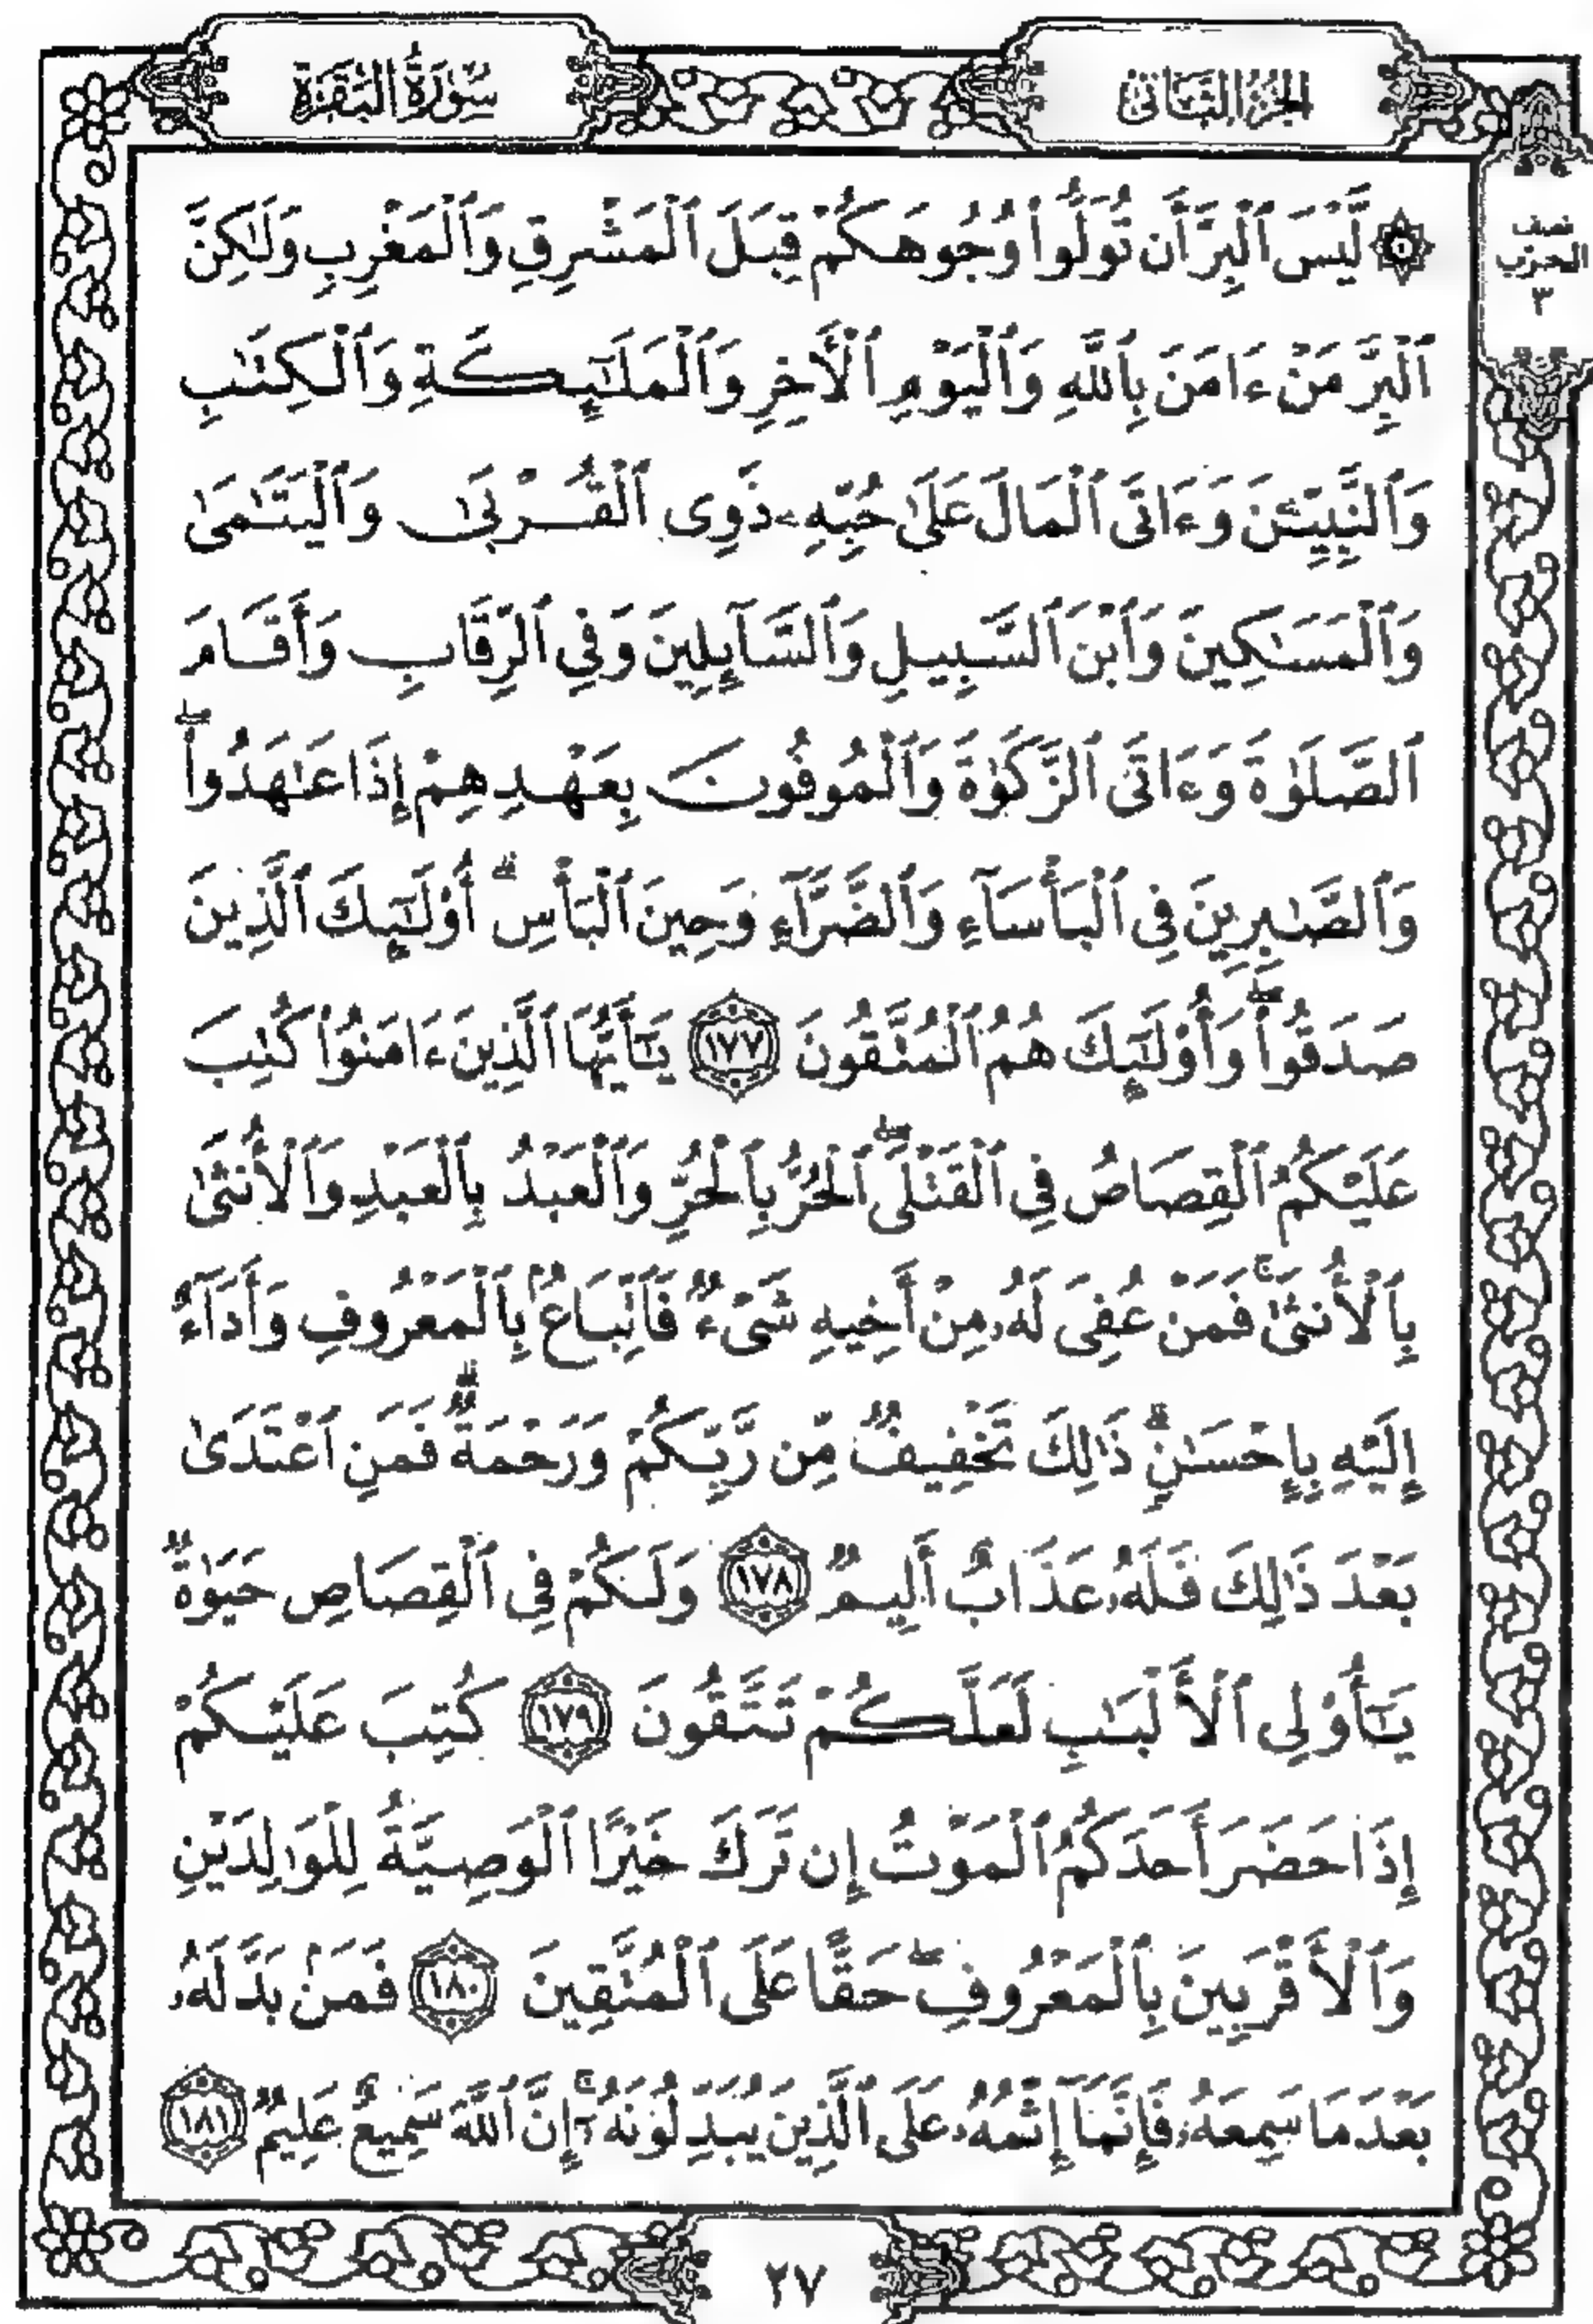 الجزء الثاني
سورة البقرة
نصف
الحزب
٣
۞ لَّيْسَ ٱلْبِرَّ أَن تُوَلُّوا۟ وُجُوهَكُمْ قِبَلَ ٱلْمَشْرِقِ وَٱلْمَغْرِبِ وَلَٰكِنَّ
ٱلْبِرَّ مَنْ ءَامَنَ بِٱللَّهِ وَٱلْيَوْمِ ٱلْءَاخِرِ وَٱلْمَلَٰٓئِكَةِ وَٱلْكِتَٰبِ
وَٱلنَّبِيِّۦنَ وَءَاتَى ٱلْمَالَ عَلَىٰ حُبِّهِۦ ذَوِى ٱلْقُرْبَىٰ وَٱلْيَتَٰمَىٰ
وَٱلْمَسَٰكِينَ وَٱبْنَ ٱلسَّبِيلِ وَٱلسَّآئِلِينَ وَفِى ٱلرِّقَابِ وَأَقَامَ
ٱلصَّلَوٰةَ وَءَاتَى ٱلزَّكَوٰةَ وَٱلْمُوفُونَ بِعَهْدِهِمْ إِذَا عَٰهَدُوا۟ ۖ
وَٱلصَّٰبِرِينَ فِى ٱلْبَأْسَآءِ وَٱلضَّرَّآءِ وَحِينَ ٱلْبَأْسِ ۗ أُو۟لَٰٓئِكَ ٱلَّذِينَ
صَدَقُوا۟ ۖ وَأُو۟لَٰٓئِكَ هُمُ ٱلْمُتَّقُونَ ١٧٧ يَٰٓأَيُّهَا ٱلَّذِينَ ءَامَنُوا۟ كُتِبَ
عَلَيْكُمُ ٱلْقِصَاصُ فِى ٱلْقَتْلَى ۖ ٱلْحُرُّ بِٱلْحُرِّ وَٱلْعَبْدُ بِٱلْعَبْدِ وَٱلْأُنثَىٰ
بِٱلْأُنثَىٰ ۚ فَمَنْ عُفِىَ لَهُۥ مِنْ أَخِيهِ شَىْءٌ فَٱتِّبَاعٌۢ بِٱلْمَعْرُوفِ وَأَدَآءٌ
إِلَيْهِ بِإِحْسَٰنٍ ۗ ذَٰلِكَ تَخْفِيفٌ مِّن رَّبِّكُمْ وَرَحْمَةٌ ۗ فَمَنِ ٱعْتَدَىٰ
بَعْدَ ذَٰلِكَ فَلَهُۥ عَذَابٌ أَلِيمٌ ١٧٨ وَلَكُمْ فِى ٱلْقِصَاصِ حَيَوٰةٌ
يَٰٓأُو۟لِى ٱلْأَلْبَٰبِ لَعَلَّكُمْ تَتَّقُونَ ١٧٩ كُتِبَ عَلَيْكُمْ
إِذَا حَضَرَ أَحَدَكُمُ ٱلْمَوْتُ إِن تَرَكَ خَيْرًا ٱلْوَصِيَّةُ لِلْوَٰلِدَيْنِ
وَٱلْأَقْرَبِينَ بِٱلْمَعْرُوفِ ۖ حَقًّا عَلَى ٱلْمُتَّقِينَ ١٨٠ فَمَنۢ بَدَّلَهُۥ
بَعْدَ مَا سَمِعَهُۥ فَإِنَّمَآ إِثْمُهُۥ عَلَى ٱلَّذِينَ يُبَدِّلُونَهُۥٓ ۚ إِنَّ ٱللَّهَ سَمِيعٌ عَلِيمٌ ١٨١
٢٧